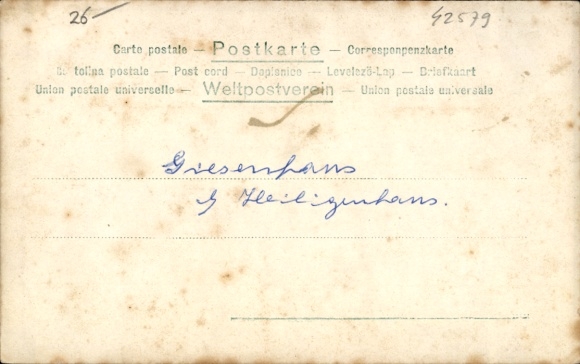 26-
42579
Carte postale — Postkarte — Correspondenzkarte
tolina postale — Post cord — Dopisnice — Levelező-Lap — Briefkaart
Union postale universelle — Weltpostverein — Union postale universale
Giesenhaus
Heiligenhaus.